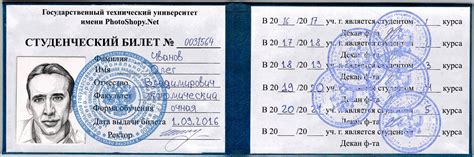 Государственный технический университет
имени PhotoShopy.Net
СТУДЕНЧЕСКИЙ БИЛЕТ № 0031564
Фамилия Иванов
Имя Олег
Отчество Владимирович
Факультет
Форма обучения очная
Дата выдачи билета 1.09.2016
Ректор
В 2016/2017 уч. г. является студентом 1 курса
Декан ф-та
В 2017/2018 уч. г. является студентом курса
Декан ф-та
В 2018/2019 уч. г. является студентом курса
Декан ф-та
В 2019/2020 уч. г. является студентом 4 курса
Декан ф-та
В 2020/2021 уч. г. является студентом 5 курса
Декан ф-та
В 20 /20 уч. г. является студентом курса
Декан ф-та